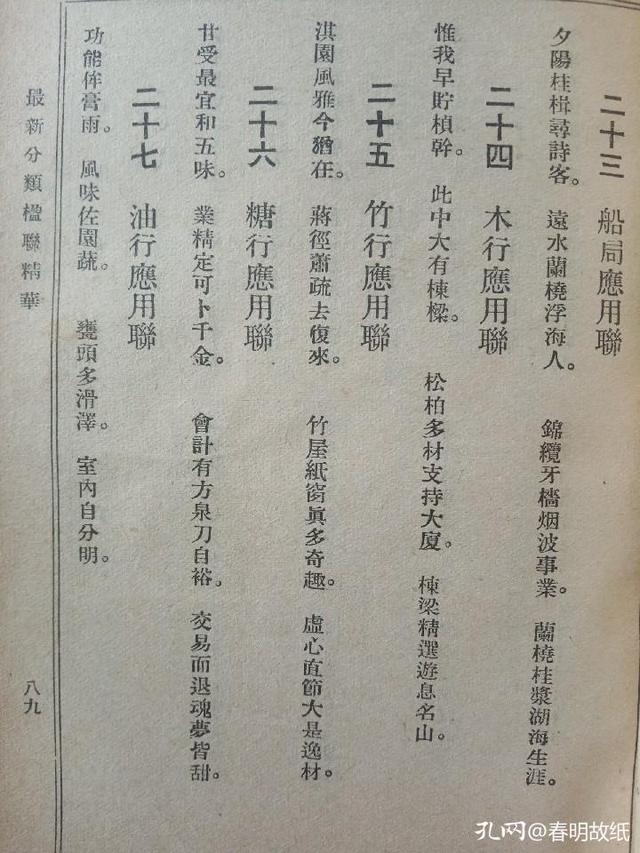 二十三　船局應用聯
夕陽桂楫尋詩客。遠水蘭橈浮海人。　錦纜牙檣烟波事業。蘭橈桂漿湖海生涯。
二十四　木行應用聯
惟我早貯楨幹。此中大有棟樑。　松柏多材支持大廈。棟梁精選遊息名山。
二十五　竹行應用聯
淇園風雅今猶在。蔣徑蕭疏去復來。　竹屋紙窗眞多奇趣。虛心直節大是逸材。
二十六　糖行應用聯
甘受最宜和五味。業精定可卜千金。　會計有方泉刀自裕。交易而退魂夢皆甜。
二十七　油行應用聯
功能侔膏雨。風味佐園蔬。　甕頭多滑澤。室內自分明。
最新分類楹聯精華
八九
孔网@春明故纸